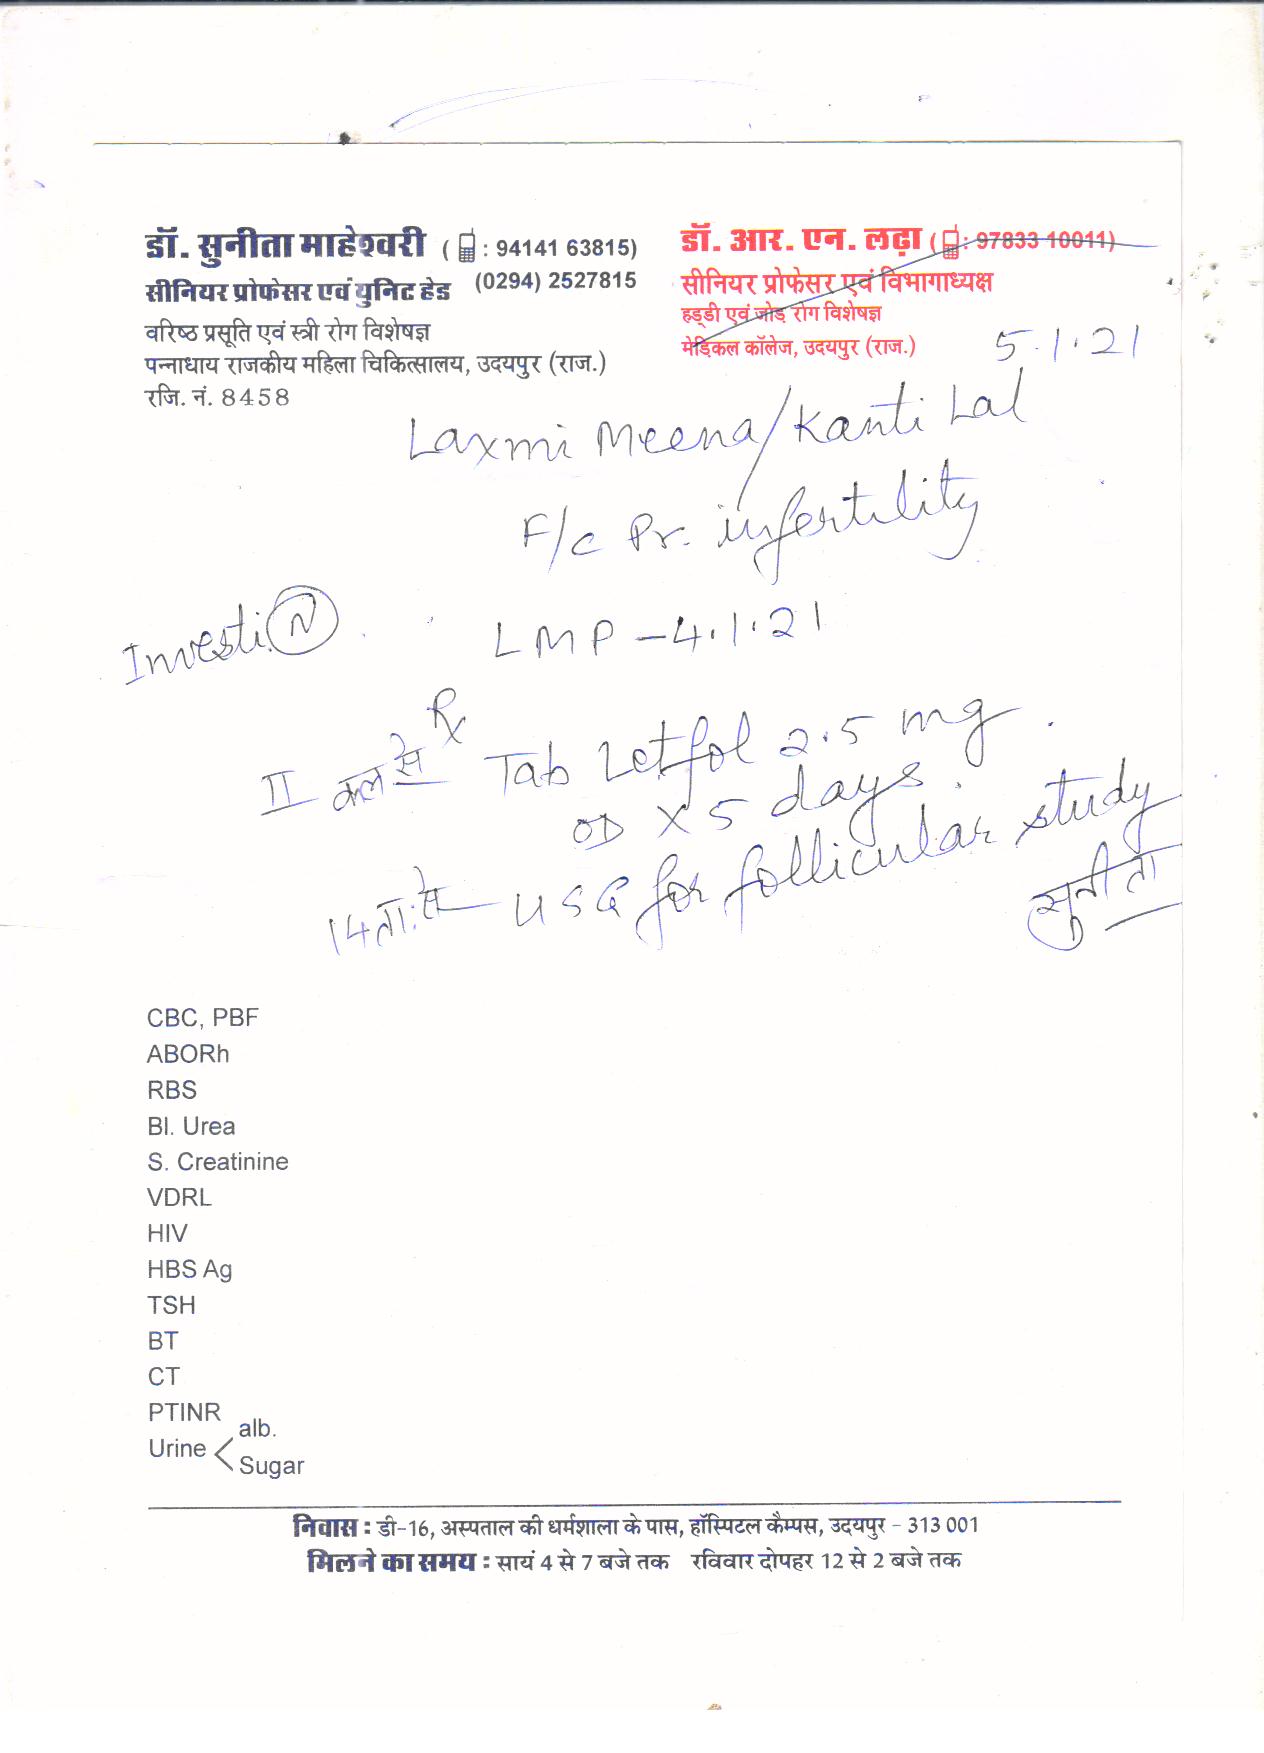 डॉ. सुनीता माहेश्वरी ( : 94141 63815)
सीनियर प्रोफेसर एवं युनिट हेड (0294) 2527815
वरिष्ठ प्रसूति एवं स्त्री रोग विशेषज्ञ
पन्नाधाय राजकीय महिला चिकित्सालय, उदयपुर (राज.)
रजि. नं. 8458
डॉ. आर. एन. लढ़ा ( : 97833 10011)
सीनियर प्रोफेसर एवं विभागाध्यक्ष
हड्डी एवं जोड़ रोग विशेषज्ञ
मेडिकल कॉलेज, उदयपुर (राज.)
5.1.21
Laxmi Meena/Kanti Lal
F/c Pr. infertility
Investi. N
LMP - 4.1.21
Rx
II कल से Tab Letfol 2.5 mg.
OD x 5 days.
14 ता: से - USG for follicular study
सुनीता
CBC, PBF
ABORh
RBS
Bl. Urea
S. Creatinine
VDRL
HIV
HBS Ag
TSH
BT
CT
PTINR
Urine < alb.
Sugar
निवास : डी-16, अस्पताल की धर्मशाला के पास, हॉस्पिटल कैम्पस, उदयपुर - 313 001
मिलने का समय : सायं 4 से 7 बजे तक रविवार दोपहर 12 से 2 बजे तक